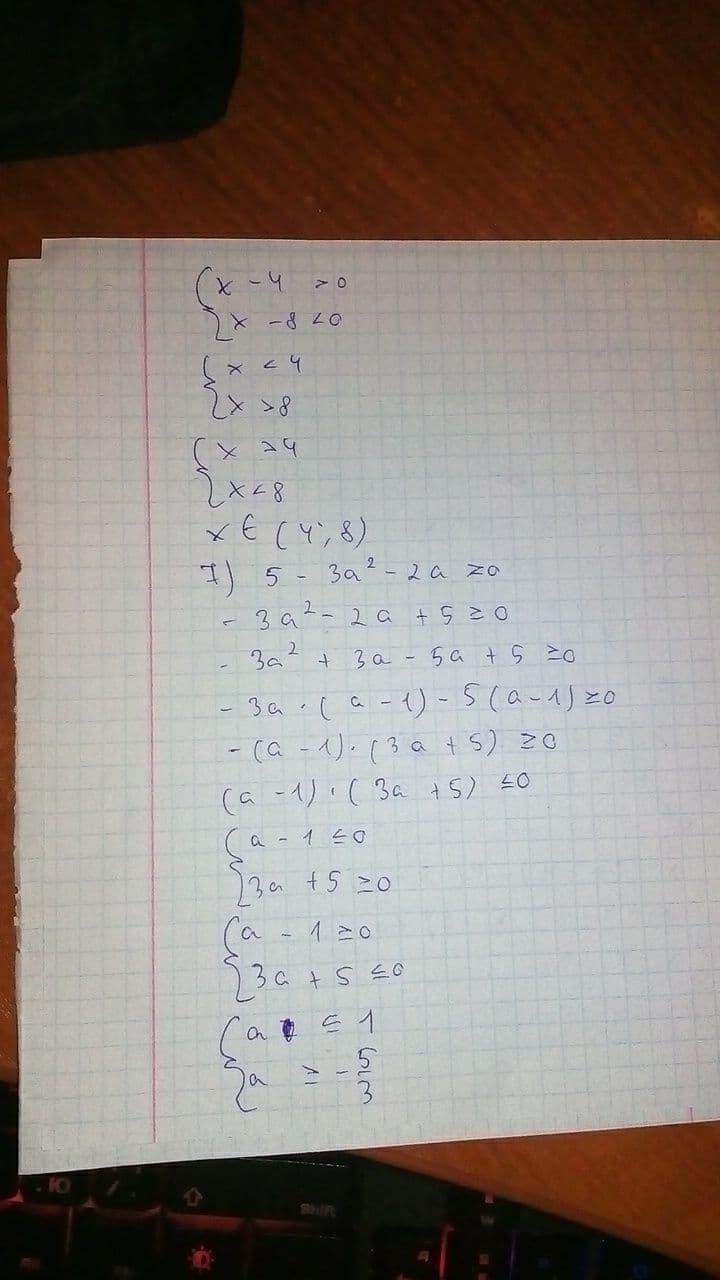 {x - 4 > 0
{x - 8 < 0
{x < 4
{x > 8
{x > 4
{x < 8
x ∈ (4; 8)
7) 5 - 3a² - 2a ≥0
- 3a² - 2a + 5 ≥ 0
- 3a² + 3a - 5a + 5 ≥0
- 3a · (a - 1) - 5(a - 1) ≥0
- (a - 1) · (3a + 5) ≥0
(a - 1) · (3a + 5) ≤0
{a - 1 ≤0
{3a + 5 ≥0
{a - 1 ≥0
{3a + 5 ≤0
{a ≤ 1
{a ≥ - 5/3
Ю
SHIFT